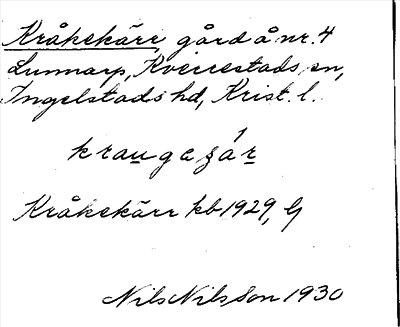 Kråkekärr, gård å nr. 4
Lunnarp, Kverrestads sn,
Ingelstads hd, Krist. l.
kraugaʒár
Kråkekärr kb 1929, G
Nils Nilsson 1930